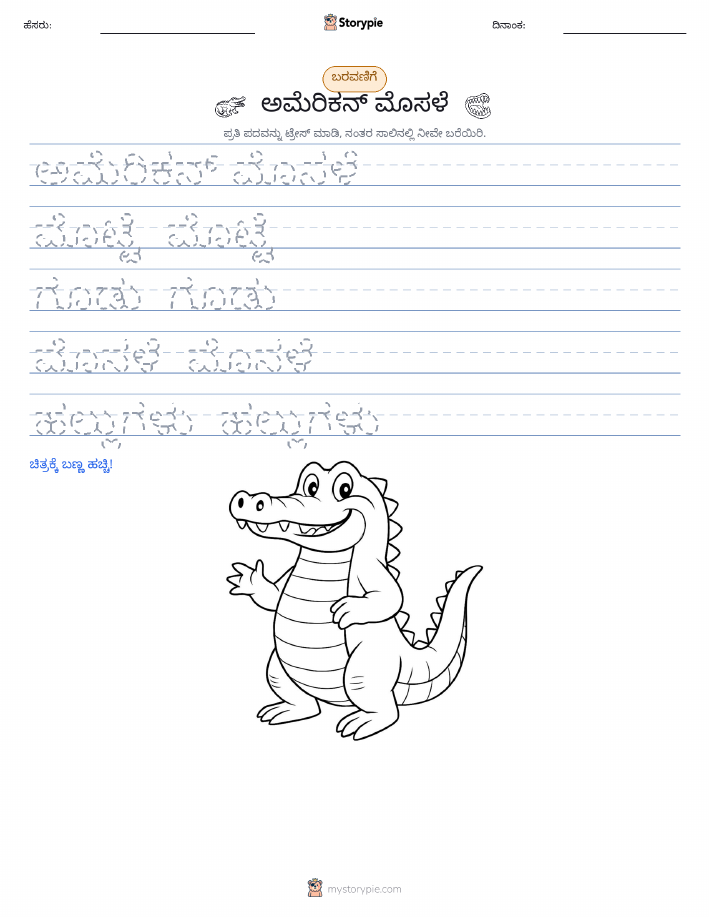 ಹೆಸರು:
Storypie
ದಿನಾಂಕ:
ಬರವಣಿಗೆ
ಅಮೆರಿಕನ್ ಮೊಸಳೆ
ಪ್ರತಿ ಪದವನ್ನು ಟ್ರೇಸ್ ಮಾಡಿ, ನಂತರ ಸಾಲಿನಲ್ಲಿ ನೀವೇ ಬರೆಯಿರಿ.
ಅಮೆರಿಕನ್ ಮೊಸಳೆ
ಮೊಟ್ಟೆ ಮೊಟ್ಟೆ
ಗೂಡು ಗೂಡು
ಮೊಸಳೆ ಮೊಸಳೆ
ಹಲ್ಲುಗಳು ಹಲ್ಲುಗಳು
ಚಿತ್ರಕ್ಕೆ ಬಣ್ಣ ಹಚ್ಚಿ!
mystorypie.com